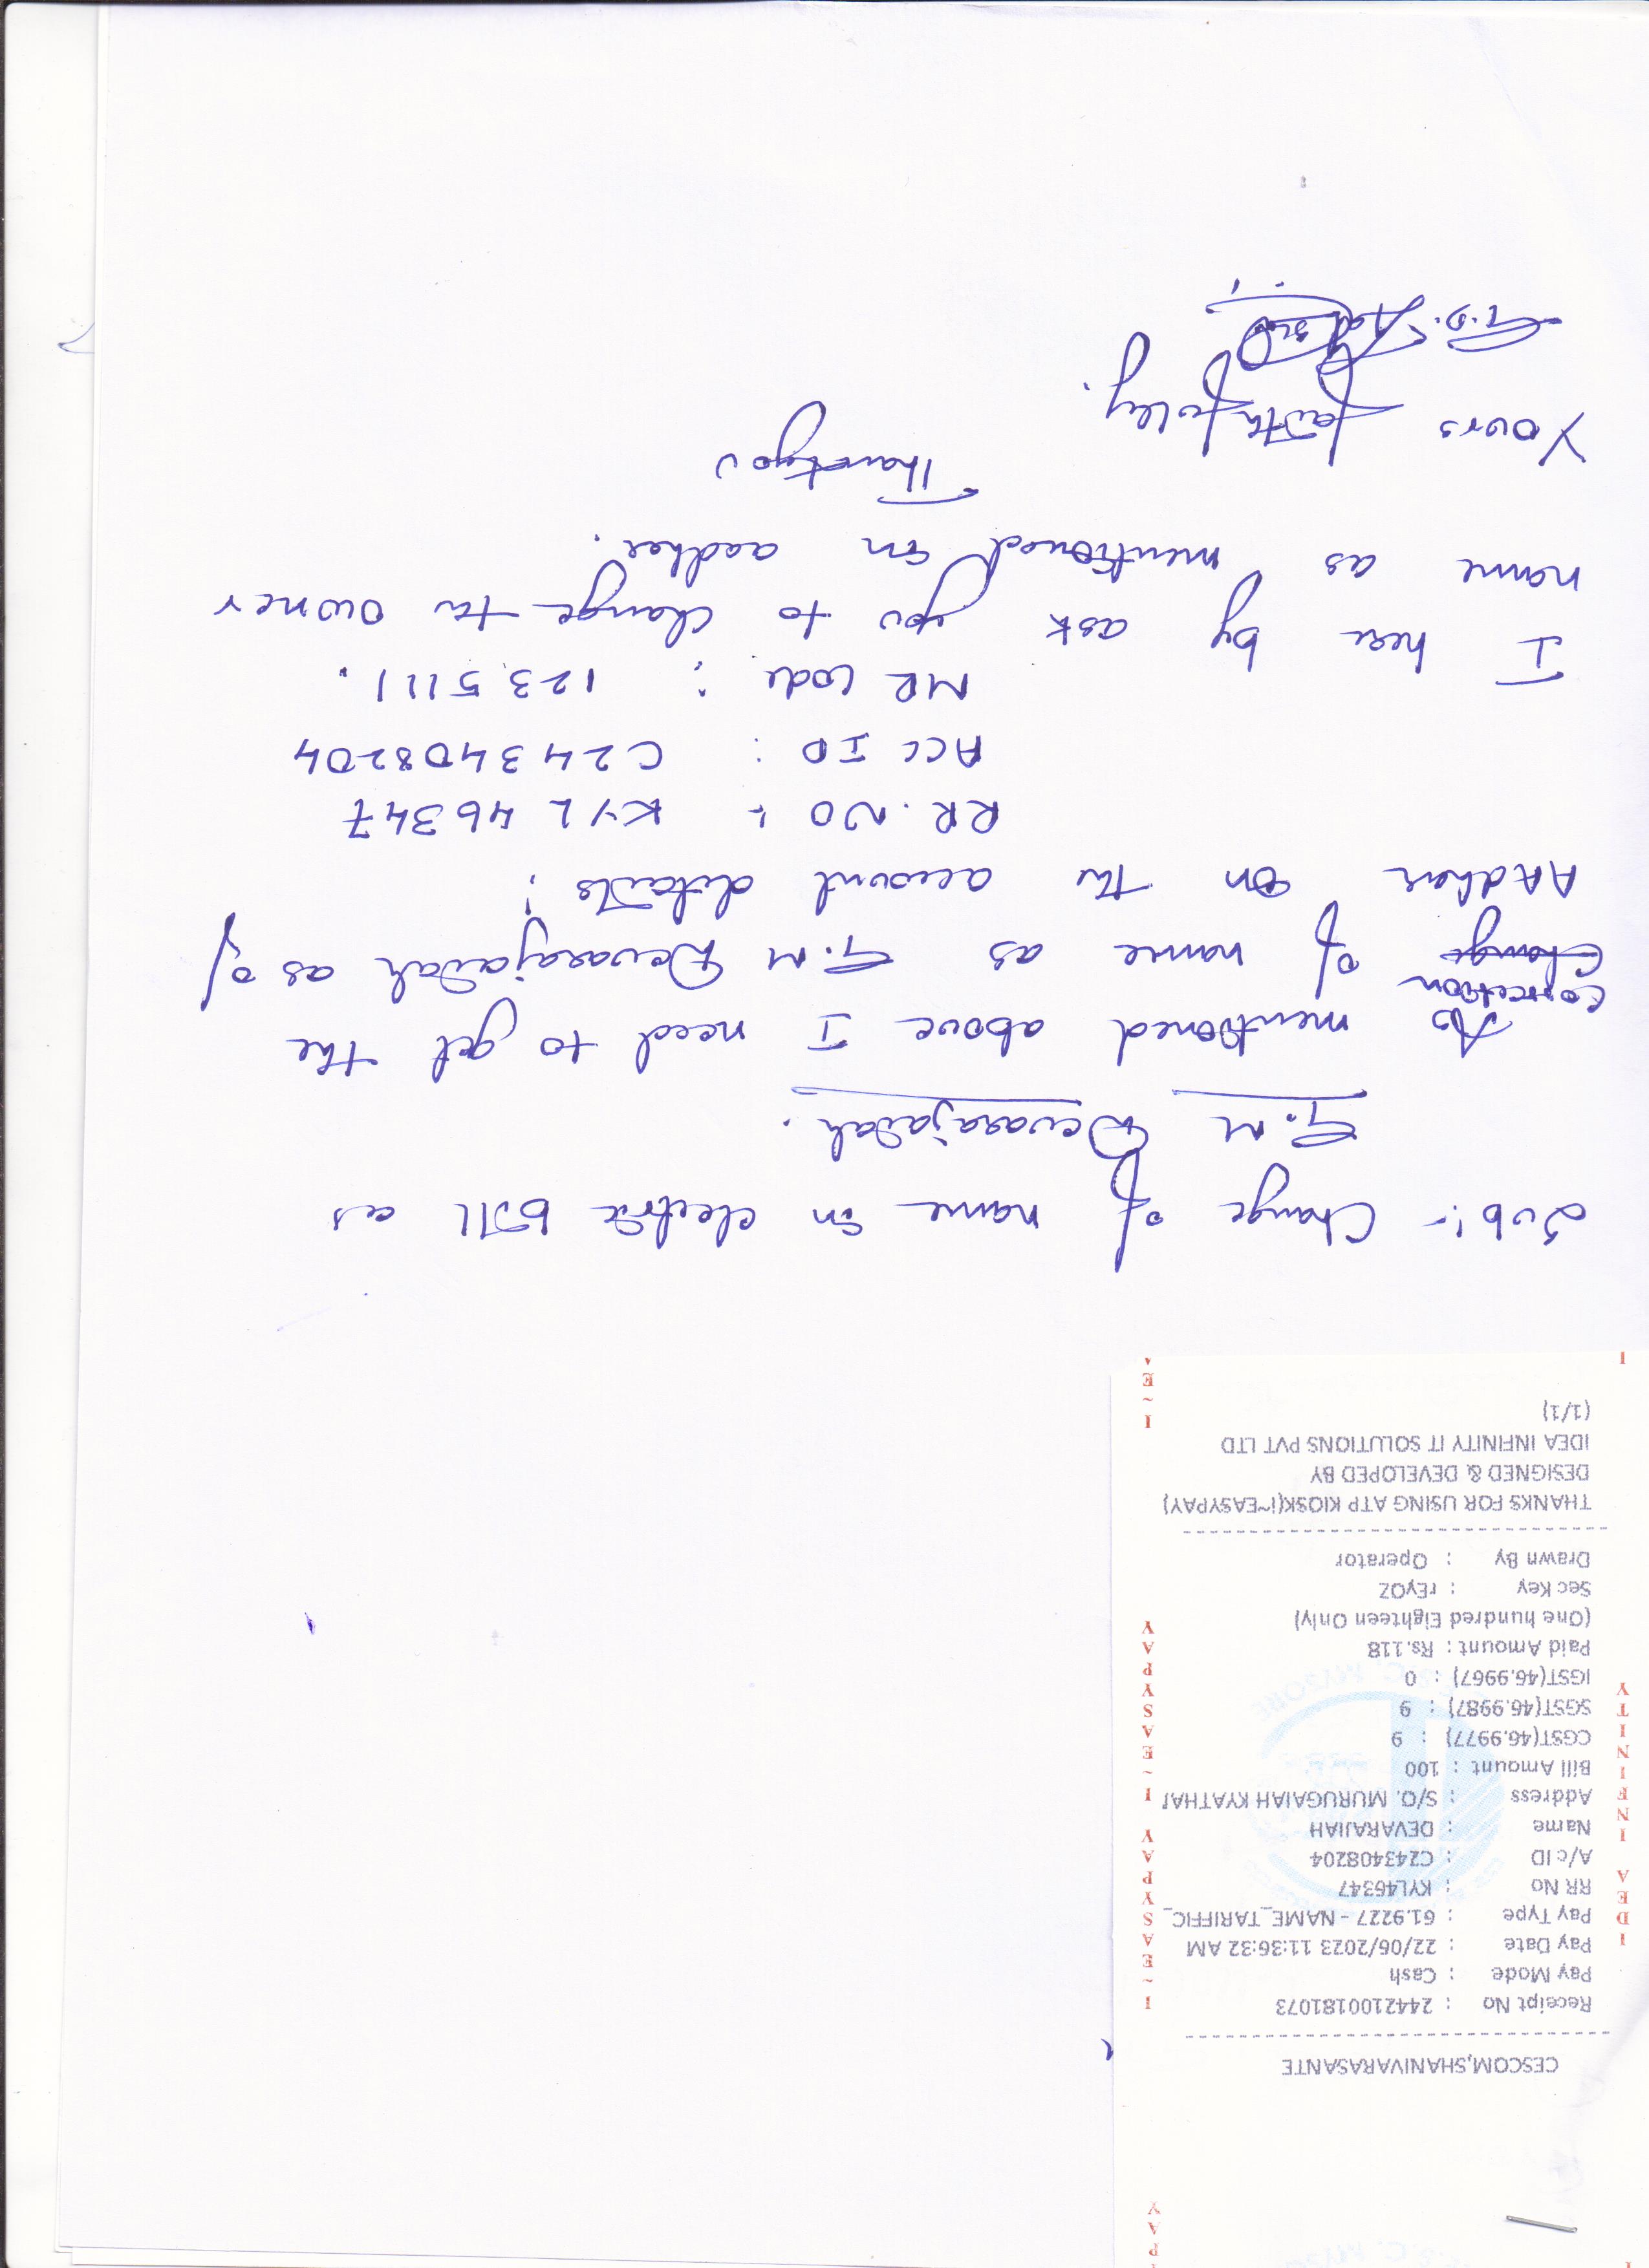 CESCOM,SHANIVARASANTE
Receipt No : 2442100181073
Pay Mode : Cash
Pay Date : 22/06/2023 11:36:32 AM
Pay Type : 61.9227 - NAME_TARIFFIC_
RR No : KYL46347
A/c ID : C243408204
Name : DEVARAJIAH
Address : S/O. MURUGAIAH KYATHA
Bill Amount : 100
CGST(46.9977) : 9
SGST(46.9987) : 9
IGST(46.9967) : 0
Paid Amount : Rs.118
(One hundred Eighteen Only)
Sec Key : rEyOZ
Drawn By : Operator
THANKS FOR USING ATP KIOSK(i~EASYPAY)
DESIGNED & DEVELOPED BY
IDEA INFINITY IT SOLUTIONS PVT LTD
(1/1)
I DEA INFINITY
I~EASYPAY I~EASYPAY
Sub:- Change of name in electric bill as
G.M Devarajaiah.
As mentioned above I need to get the
correction
Change of name as G.M Devarajaiah as of
AAdhar on the account details:
RR.NO :- KYL 46347
ACC ID : C243408204
MR Code : 1235111.
I here by ask you to change the owner
name as mentioned in aadhar.
Thankyou
Yours faithfulley.
G.D.